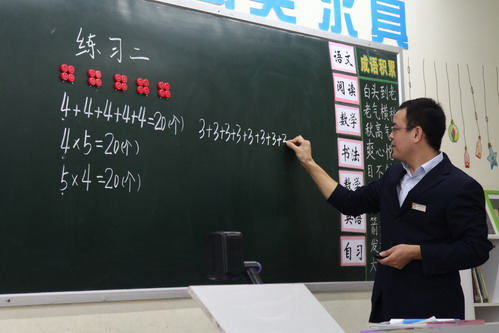 求
练习二
4+4+4+4+4=20(个)
4×5=20(个)
5×4=20(个)
3+3+3+3+3+3+3+3
语文
阅读
数学
书法
数学
英语
自习
成语积累
白头到老
老气横
秋
爽心
目不